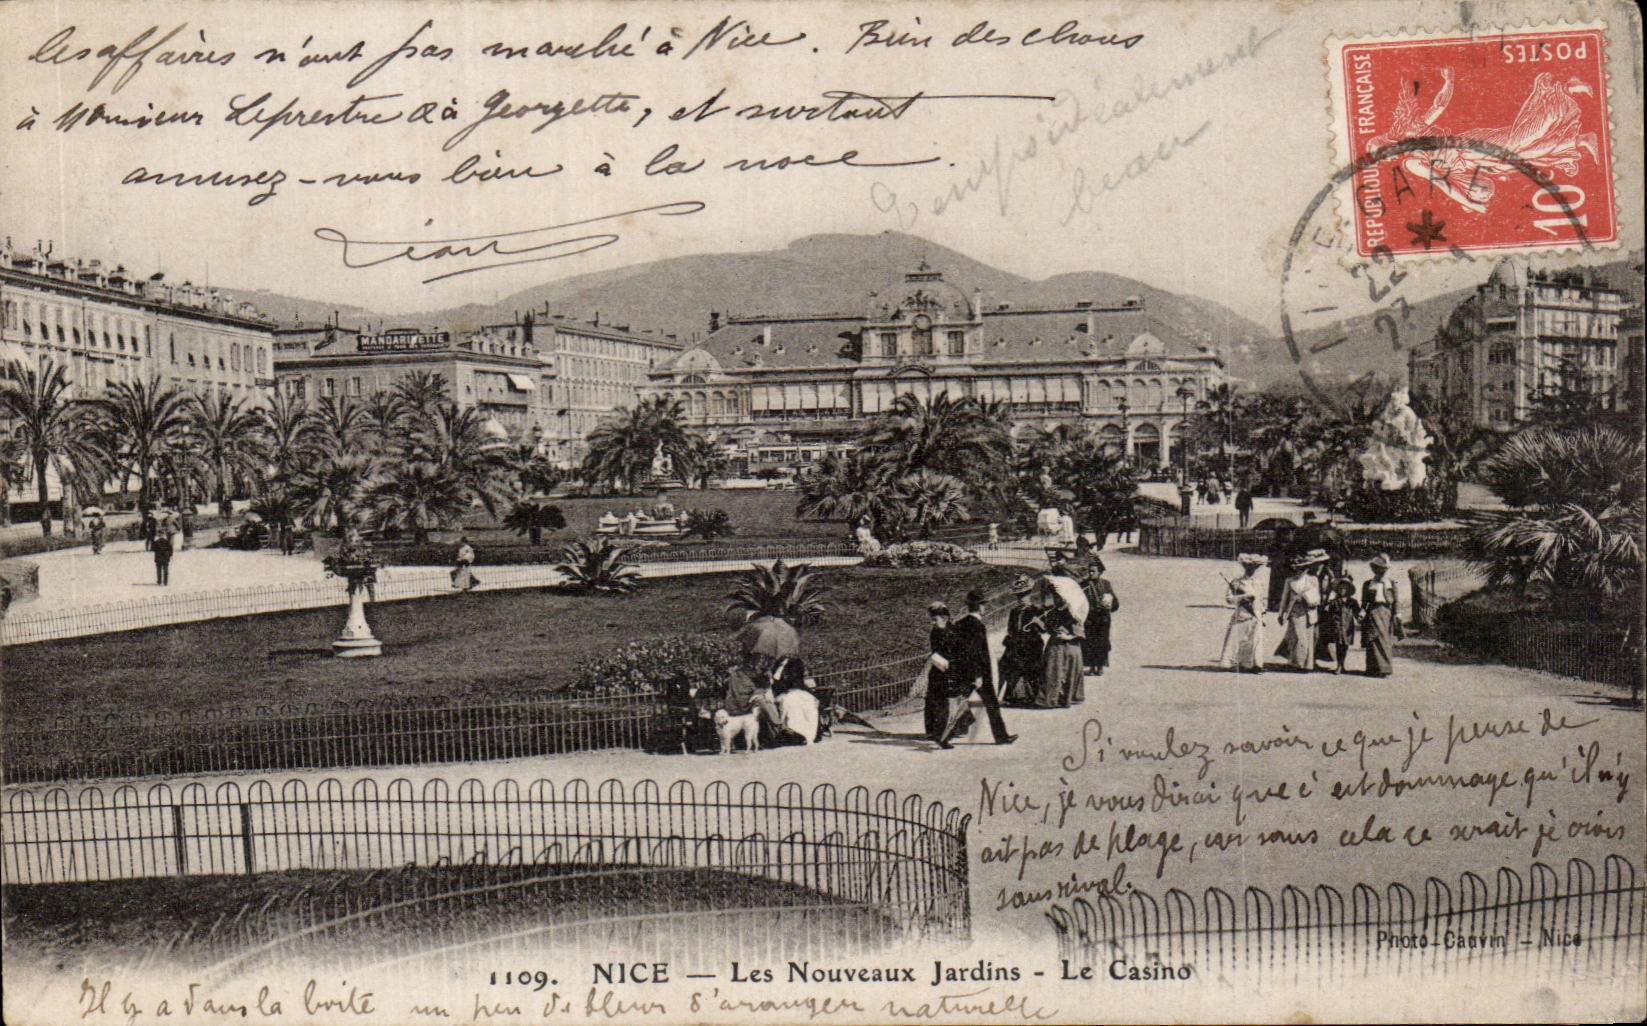 les affaires n'ont pas marché à Nice. Bien des choses
à Monsieur Leprestre & à Georgette, et surtout
amusez-vous bien à la noce.
Jean
Temps idéalement
beau
RÉPUBLIQUE FRANÇAISE
POSTES
10
GARE
22
MANDARINETTE
Si voulez savoir ce que je pense de
Nice, je vous dirai que c'est dommage qu'il n'y
ait pas de plage, car sans cela ce serait je crois
sans rival.
Photo-Cauvin - Nice
1109. NICE — Les Nouveaux Jardins - Le Casino
Il y a dans la boîte un peu de fleur d'oranger naturelle